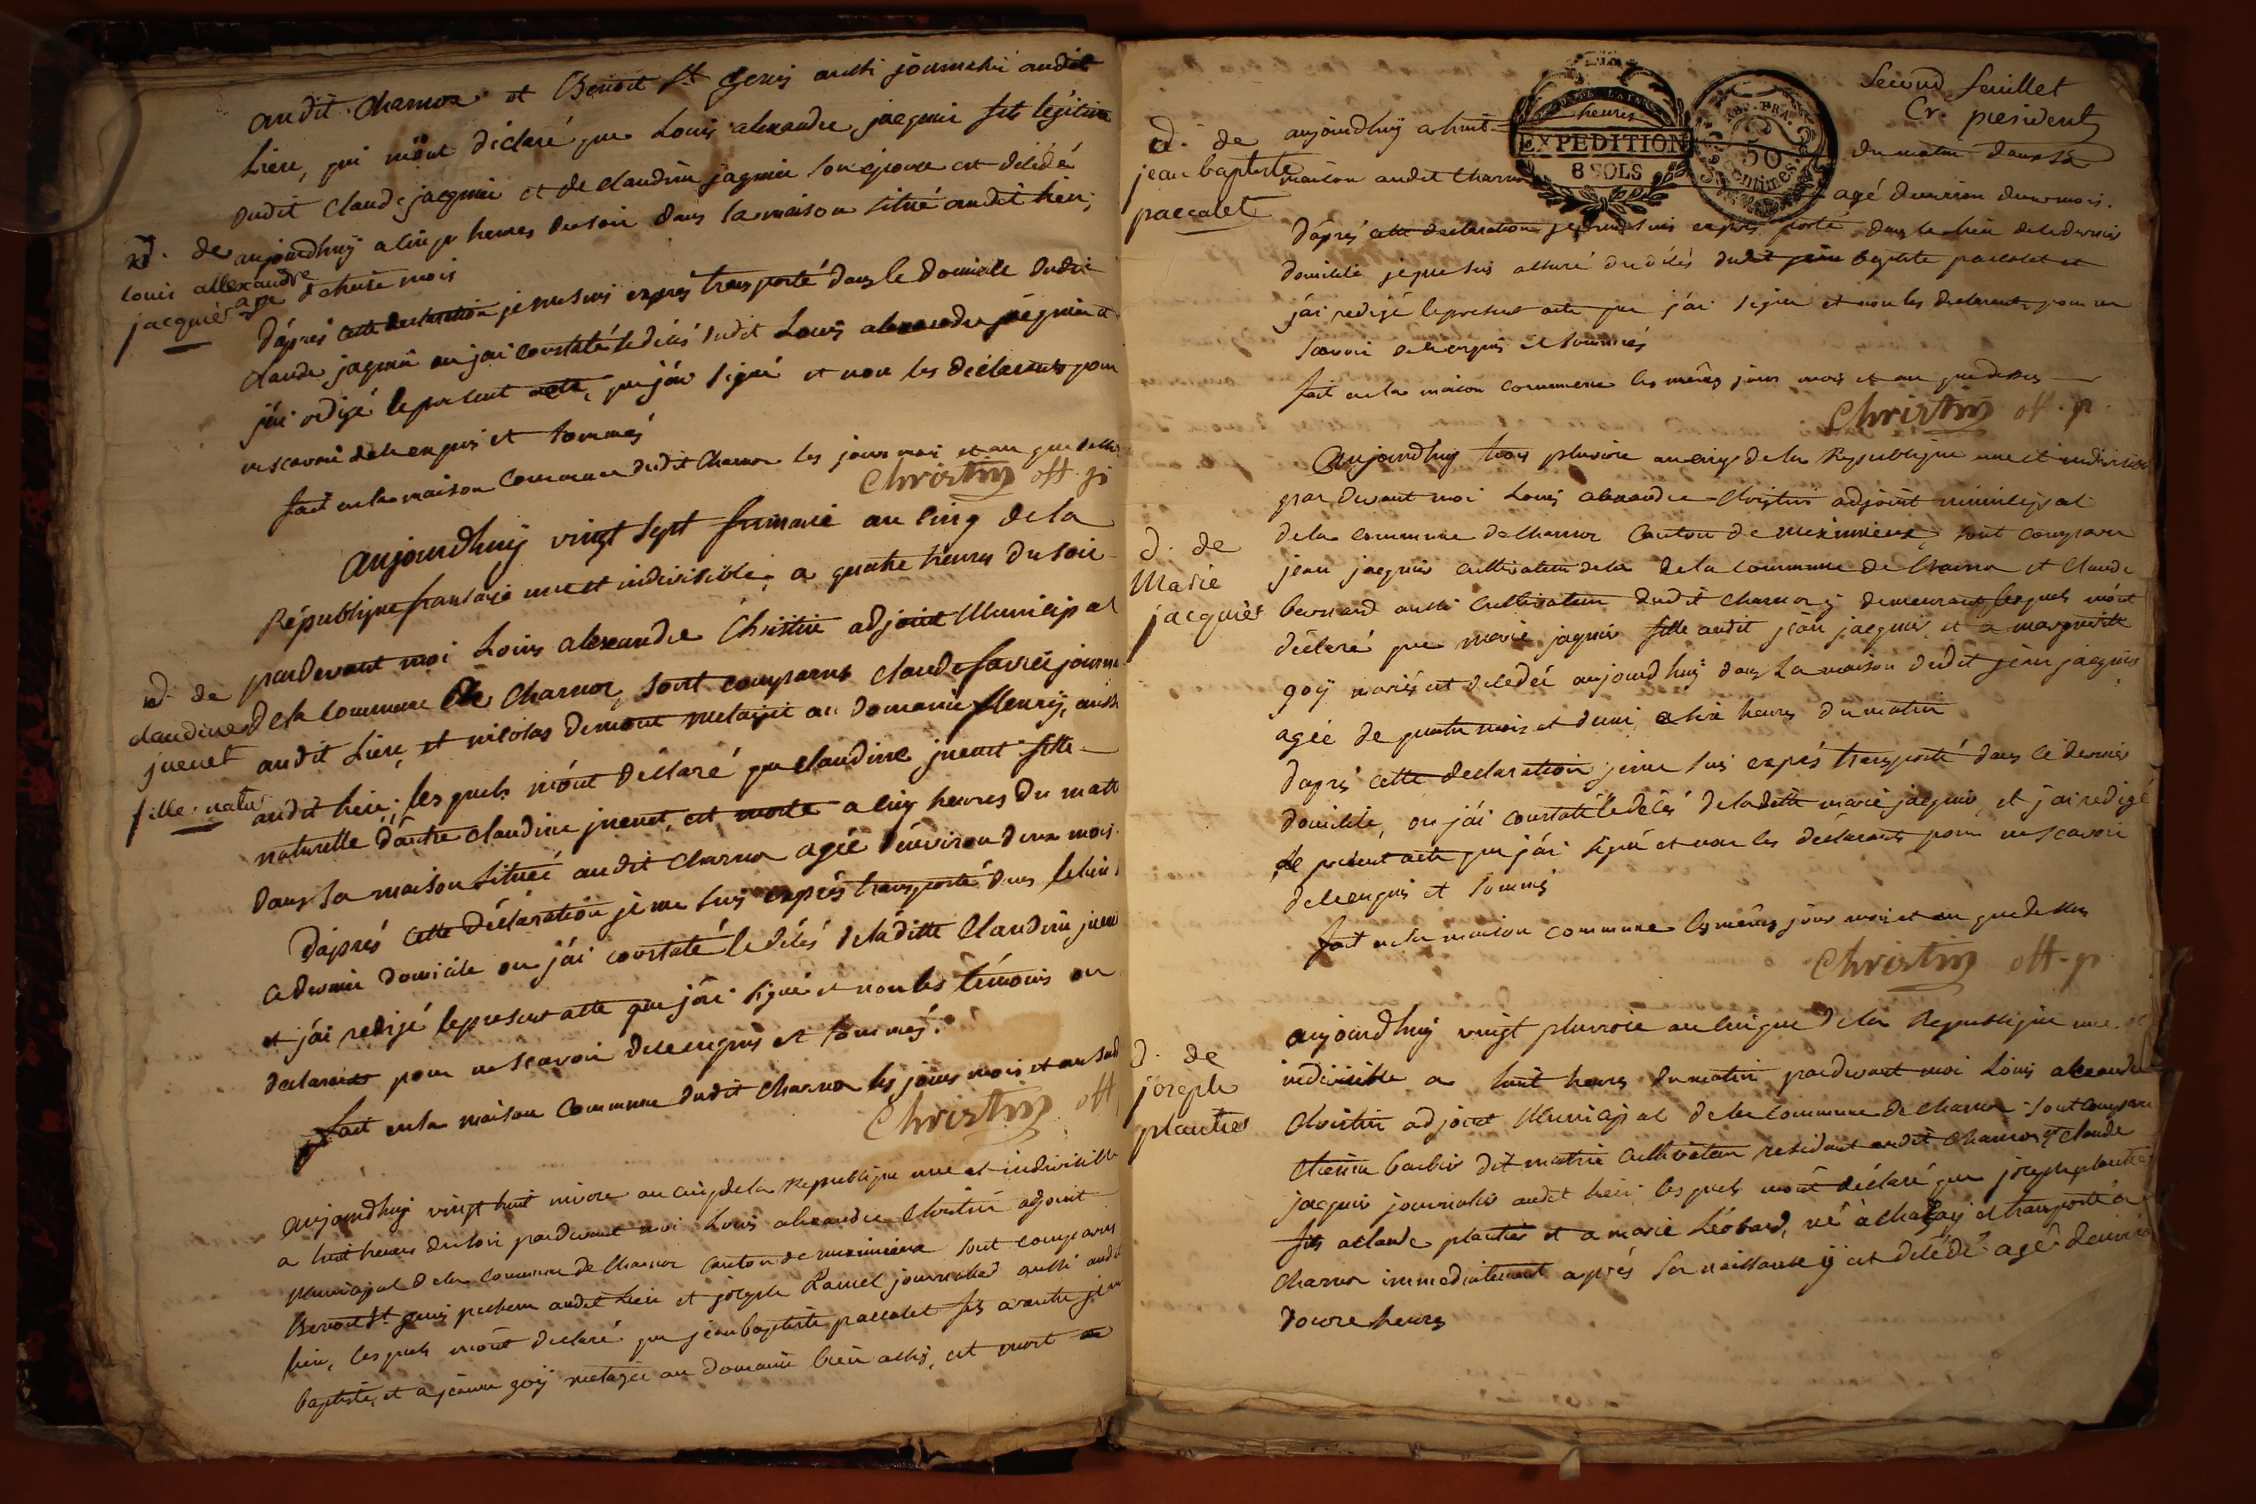 audit charnoz et Benoit St Genis aussi journalié audit
Lieu, qui m'ont déclaré que Louis alexandre jacquié fils légitime
dudit Claude jacquié et de claudine jaquié son epouse est décédé
d. de
louis allexandre
jacquier
aujourdhuy a cinq heures du soir dans la maison situé audit lieu,
age d' mois
d'aprés cette declaration je me suis exprés transporté dans le domicile dudit
claude jaquié ou jai constaté le décés dudit Louis alexandre jacquié et
j'ai redigé le present acte, que j'ai signé et non les déclarants pour
ne scavoir de ce enquis et sommés
fait en la maison commune dudit Charnoz les jour mois et an que dessus
Christin off. p.
aujourdhuy vingt sept frimaire an cinq de la
République francaise une et indivisible, a quatre heures du soir
pardevant moi Louis alexandre Christin adjoint Municipal
d. de
claudine
juenet
fille natu
de la commune de Charnoz, sont comparus claude favier journa
audit Lieu, et nicolas demont metayié au domaine fleury, aussi
audit lieu; les quels m'ont déclaré que claudine juenet fille
naturelle d'autre claudine juenet, est morte a cinq heures du mati
dans sa maison située audit charnoz agée d'environ deux mois.
D'aprés cette déclaration je me suis exprés transporté dans le lieu
de dernier domicile ou j'ai constaté le décés de laditte Claudine juen
et j'ai redigé le present acte que j'ai signé et non les témoins ou
declarants pour ne scavoir de ce enquis et sommés.
fait en la maison commune dudit Charnoz les jours mois et an susd
Christin off
aujourdhuy vingt huit nivose an cinq de la Republique une et indivisible
a huit heures du soir pardevant moi Louis alexandre Christin adjoint
Municipal de la commune de Charnoz canton de meximieux sont comparus
Benoit St genis pecheur audit Lieu et joseph Ramel journalier aussi audit
lieu, les quels m'ont declaré que jean baptiste paccalet fils a autre jean
baptiste, et a jeanne goy metayié au domaine bien assis, est mort
Second feuillet
Cr. president
d. de
jean baptiste
paccalet
aujourdhuy a huit heures du matin dans sa
EXPEDITION
8 SOLS
50
Centimes
maison audit Charnoz agé d'environ deux mois.
D'aprés cette declaration je me suis exprés porté dans le lieu de dernier
domicile, je me suis assuré du décés dudit jean baptiste paccalet et
j'ai redigé le present acte que j'ai signé et non les declarants pour ne
scavoir de ce enquis et sommés
fait en la maison commune les mêmes jour mois et an que dessus
Christin off. p.
Aujourdhuy trois pluviose an cinq de la Republique une et indivisible
par devant moi Louis alexandre Christin adjoint municipal
d. de
Marie
jacquier
de la commune de Charnoz Canton de meximieux, sont comparu
jean jaquier cultivateur de la de la commune de Charnoz et Claude
bernard aussi cultivateur dudit charnoz y demeurant lesquels m'ont
déclaré que marie jaquier fille audit jean jacquier, et a marguerite
goy mariés est décédée aujourdhuy dans La maison dudit jean jaquier
agée de quatre mois et demi a six heures du matin
d'aprés cette declaration je me suis exprés transporté dans ce dernier
domicile, ou j'ai constaté le décés de laditte marie jaquier, et j'ai redigé
le present acte que j'ai signé et non les déclarants pour ne scavoir
de ce enquis et sommés
fait en la maison commune les mêmes jour mois et an que dessus
Christin off. p.
d. de
joseph
plantier
aujourdhuy vingt pluviose an cinq de la Republique une et
indivisible a huit heures du matin pardevant moi Louis alexandre
Christin adjoint Municipal de la commune de charnoz sont comparu
Etienne barbier dit matrie cultivateur residant audit Charnoz et Claude
jacquier journalier audit lieu: lesquels m'ont déclaré que joseph plantier
fils a claude plantier et a marie Léobard, né a chazay et transporté a
charnoz immediatement aprés sa naissance y est décédé agé d'environ
douze heures